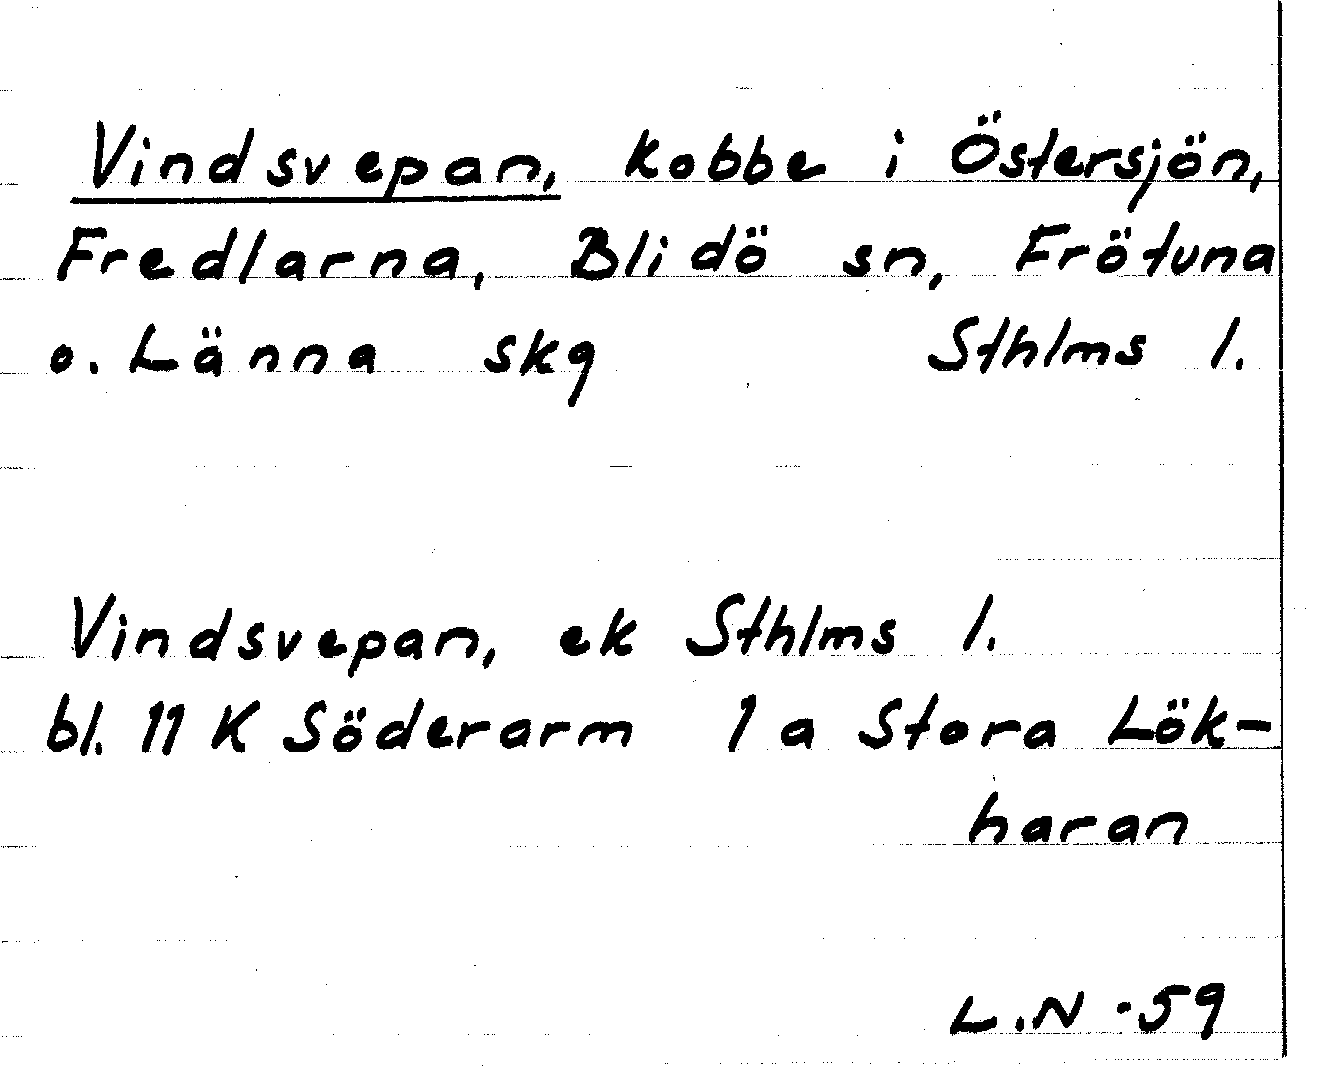 Vindsvepan, kobbe i Östersjön,
Fredlarna, Blidö sn, Frötuna
o. Länna skg Sthlms l.
Vindsvepan, ek Sthlms l.
bl. 11 K Söderarm 1 a Stora Lök-
haran
L.N -59